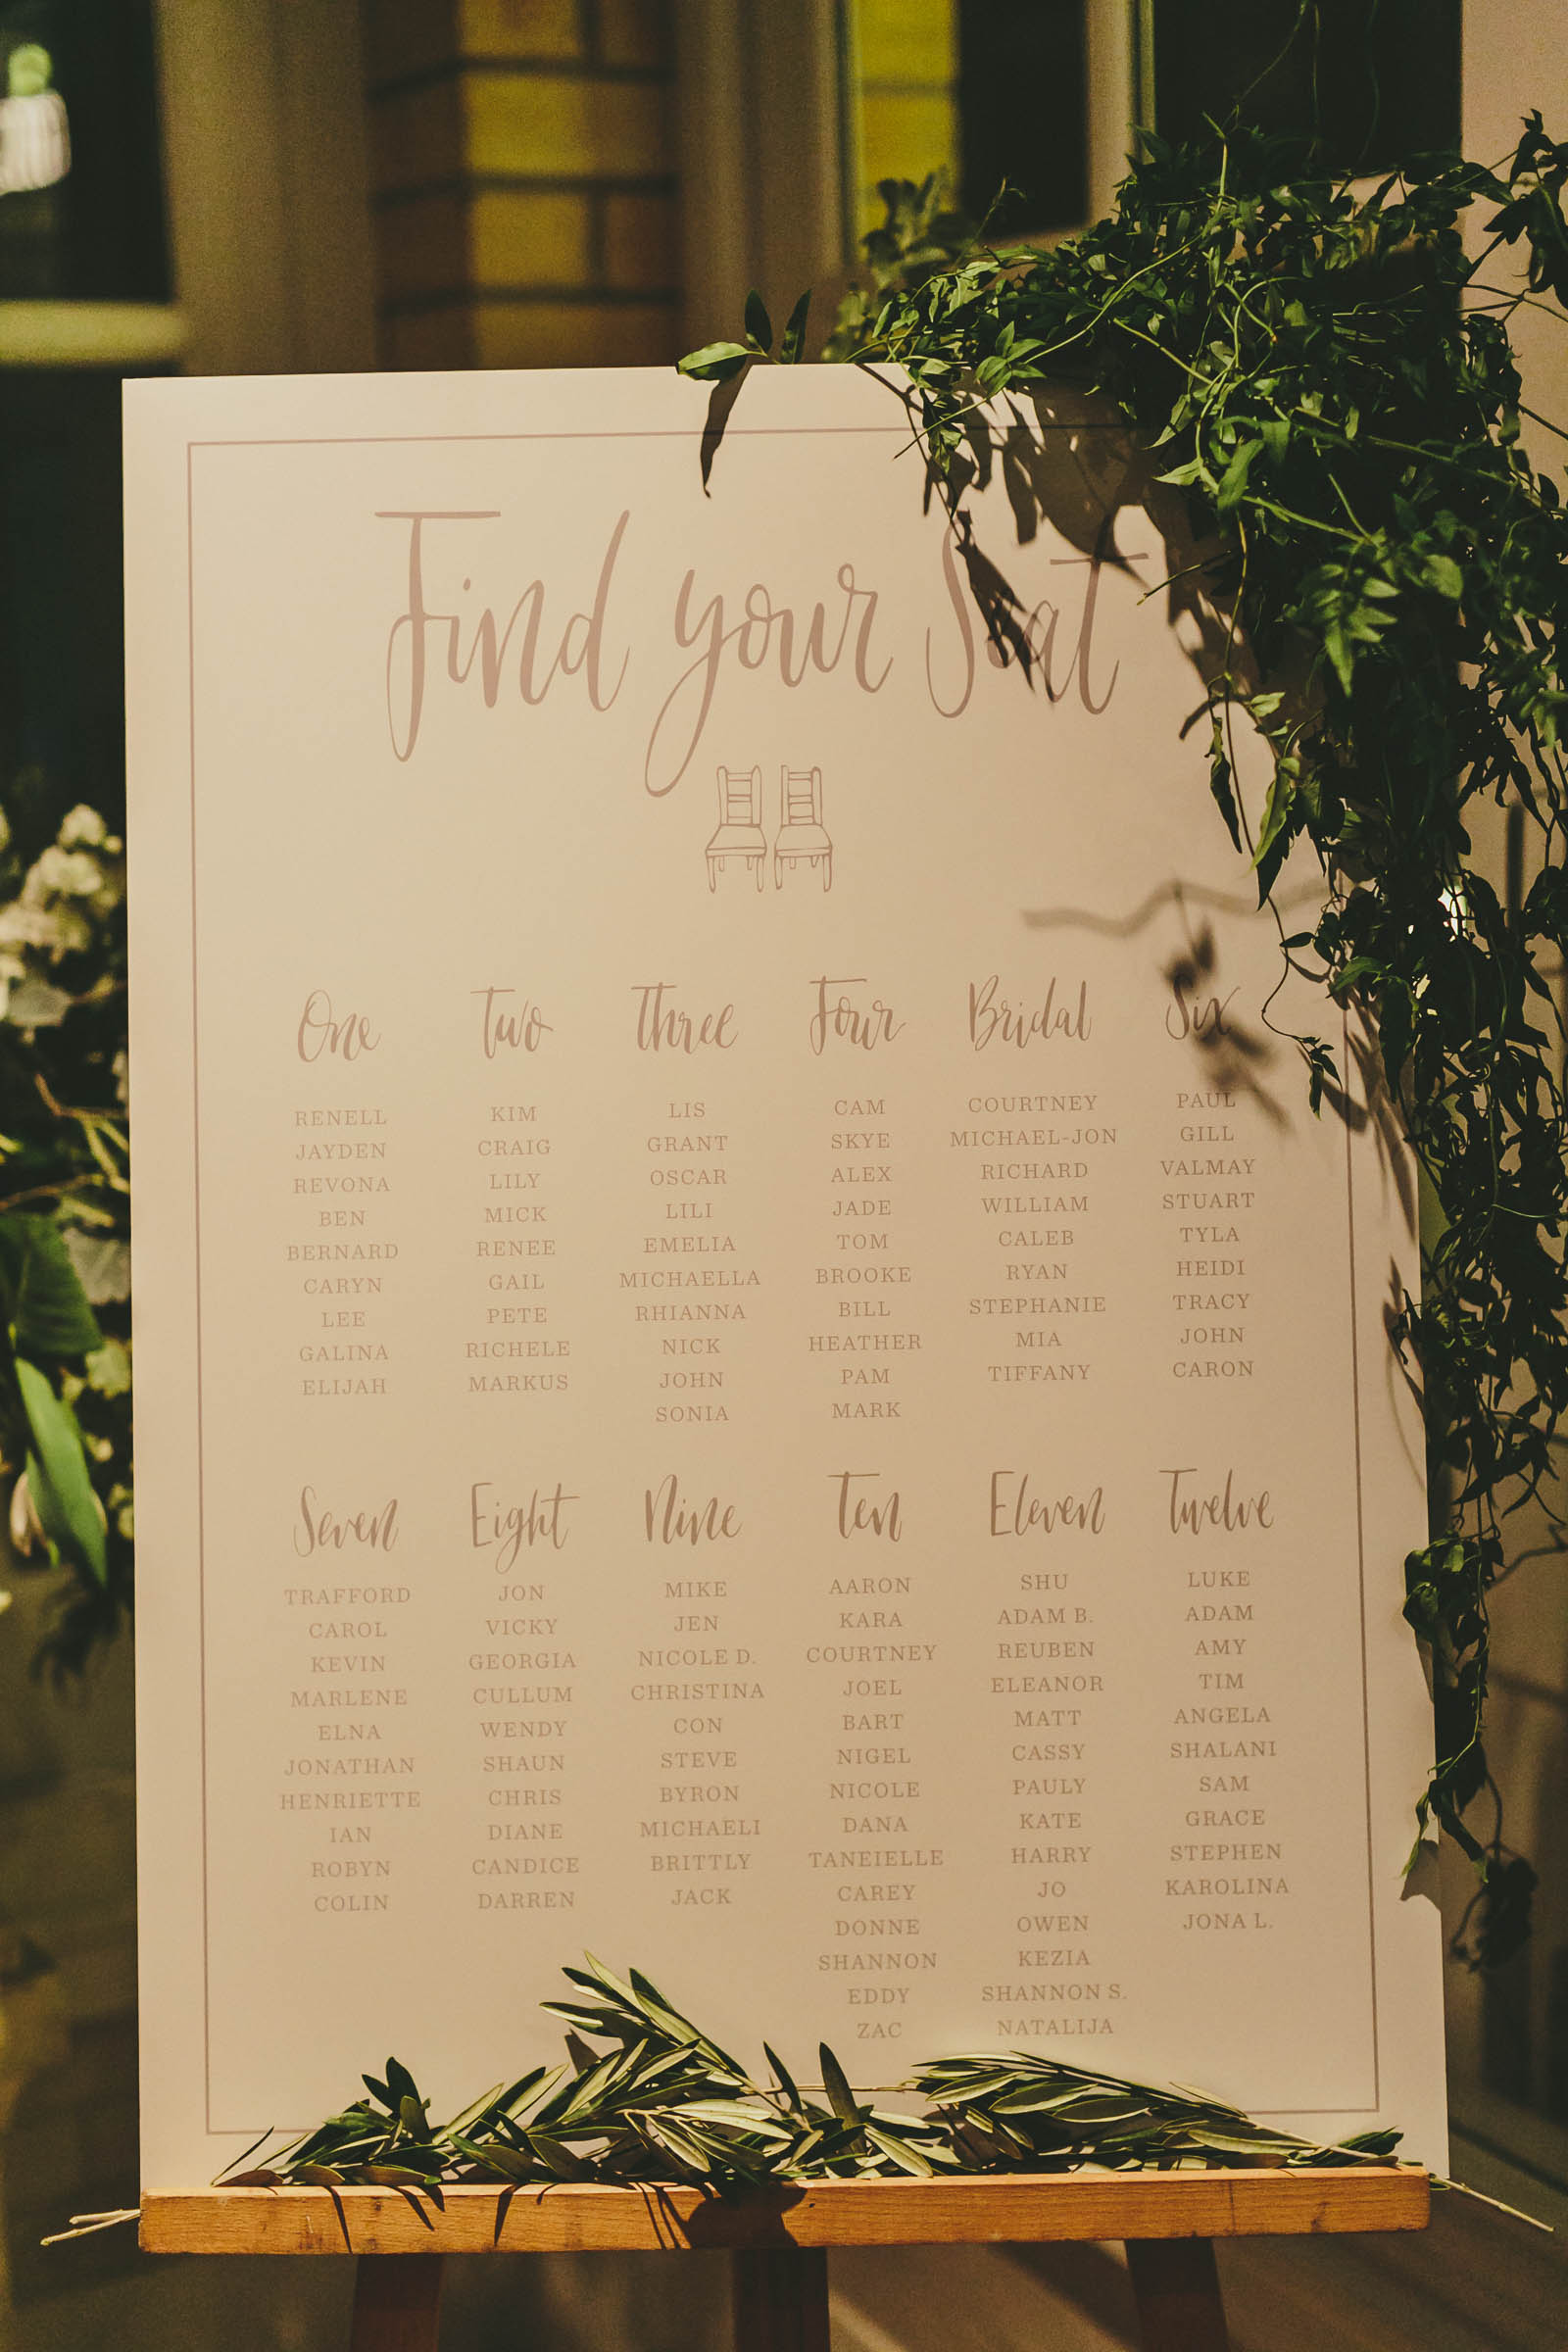 Find your Seat
One
RENELL
JAYDEN
REVONA
BEN
BERNARD
CARYN
LEE
GALINA
ELIJAH
Two
KIM
CRAIG
LILY
MICK
RENEE
GAIL
PETE
RICHELE
MARKUS
Three
LIS
GRANT
OSCAR
LILI
EMELIA
MICHAELLA
RHIANNA
NICK
JOHN
SONIA
Four
CAM
SKYE
ALEX
JADE
TOM
BROOKE
BILL
HEATHER
PAM
MARK
Bridal
COURTNEY
MICHAEL-JON
RICHARD
WILLIAM
CALEB
RYAN
STEPHANIE
MIA
TIFFANY
Six
PAUL
GILL
VALMAY
STUART
TYLA
HEIDI
TRACY
JOHN
CARON
Seven
TRAFFORD
CAROL
KEVIN
MARLENE
ELNA
JONATHAN
HENRIETTE
IAN
ROBYN
COLIN
Eight
JON
VICKY
GEORGIA
CULLUM
WENDY
SHAUN
CHRIS
DIANE
CANDICE
DARREN
Nine
MIKE
JEN
NICOLE D.
CHRISTINA
CON
STEVE
BYRON
MICHAELI
BRITTLY
JACK
Ten
AARON
KARA
COURTNEY
JOEL
BART
NIGEL
NICOLE
DANA
TANEIELLE
CAREY
DONNE
SHANNON
EDDY
ZAC
Eleven
SHU
ADAM B.
REUBEN
ELEANOR
MATT
CASSY
PAULY
KATE
HARRY
JO
OWEN
KEZIA
SHANNON S.
NATALIJA
Twelve
LUKE
ADAM
AMY
TIM
ANGELA
SHALANI
SAM
GRACE
STEPHEN
KAROLINA
JONA L.